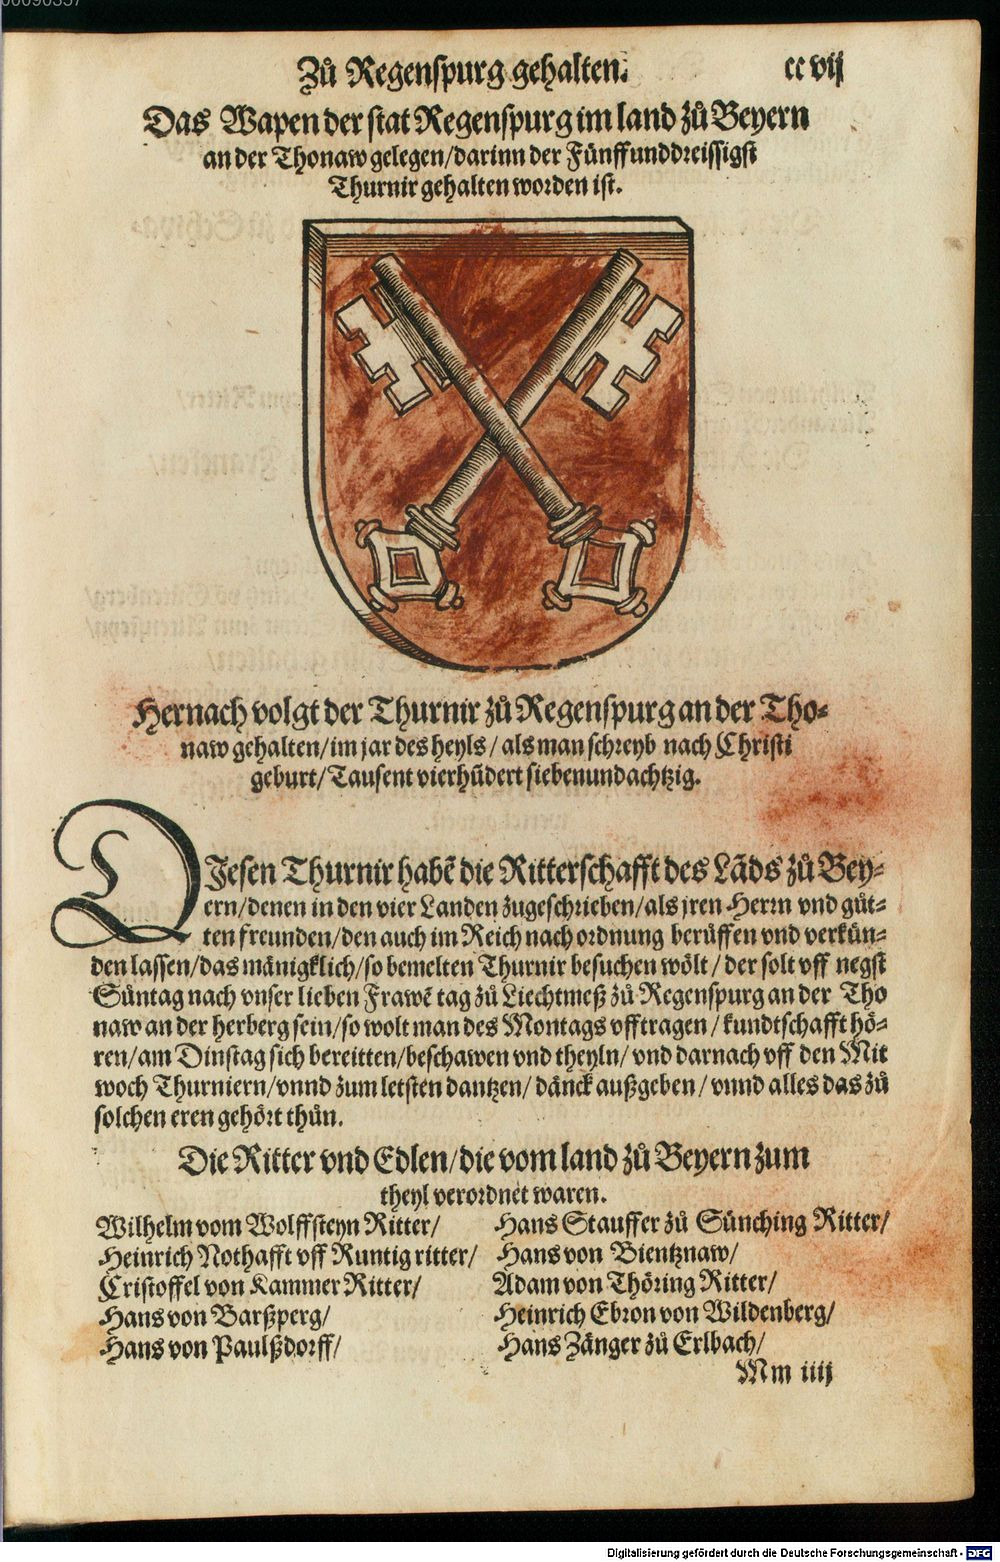 00090357
Zů Regenspurg gehalten.
cc vij
Das Wapen der stat Regenspurg im land zů Beyern
an der Thonaw gelegen/darinn der Fünffunddreissigst
Thurnir gehalten worden ist.
Hernach volgt der Thurnir zů Regenspurg an der Tho⸗
naw gehalten/im jar des heyls/als man schreyb nach Christi
geburt/Tausent vierhūdert siebenundachtzig.
DIesen Thurnir habē die Ritterschafft des Lāds zů Bey⸗
ern/denen in den vier Landen zugeschrieben/als jren Herrn vnd gůt⸗
ten freunden/den auch im Reich nach ordnung berůffen vnd verkün⸗
den lassen/das mānigklich/so bemelten Thurnir besuchen wölt/der solt vff negst
Sůntag nach vnser lieben Frawē tag zů Liechtmeß zů Regenspurg an der Tho
naw an der herberg sein/so wolt man des Montags vfftragen/kundtschafft hö⸗
ren/am Dinstag sich bereitten/beschawen vnd theyln/vnd darnach vff den Mit
woch Thurniern/vnnd zum letsten dantzen/dänck außgeben/vnnd alles das zů
solchen eren gehört thůn.
Die Ritter vnd Edlen/die vom land zů Beyern zum
theyl verordnet waren.
Wilhelm vom Wolffsteyn Ritter/
Heinrich Nothafft vff Runtig ritter/
Cristoffel von Kammer Ritter/
Hans von Barßperg/
Hans von Paulßdorff/
Hans Stauffer zů Sünching Ritter/
Hans von Bientznaw/
Adam von Thöring Ritter/
Heinrich Ebron von Wildenberg/
Hans Zänger zů Erlbach/
Mm iiij
Digitalisierung gefördert durch die Deutsche Forschungsgemeinschaft - DFG